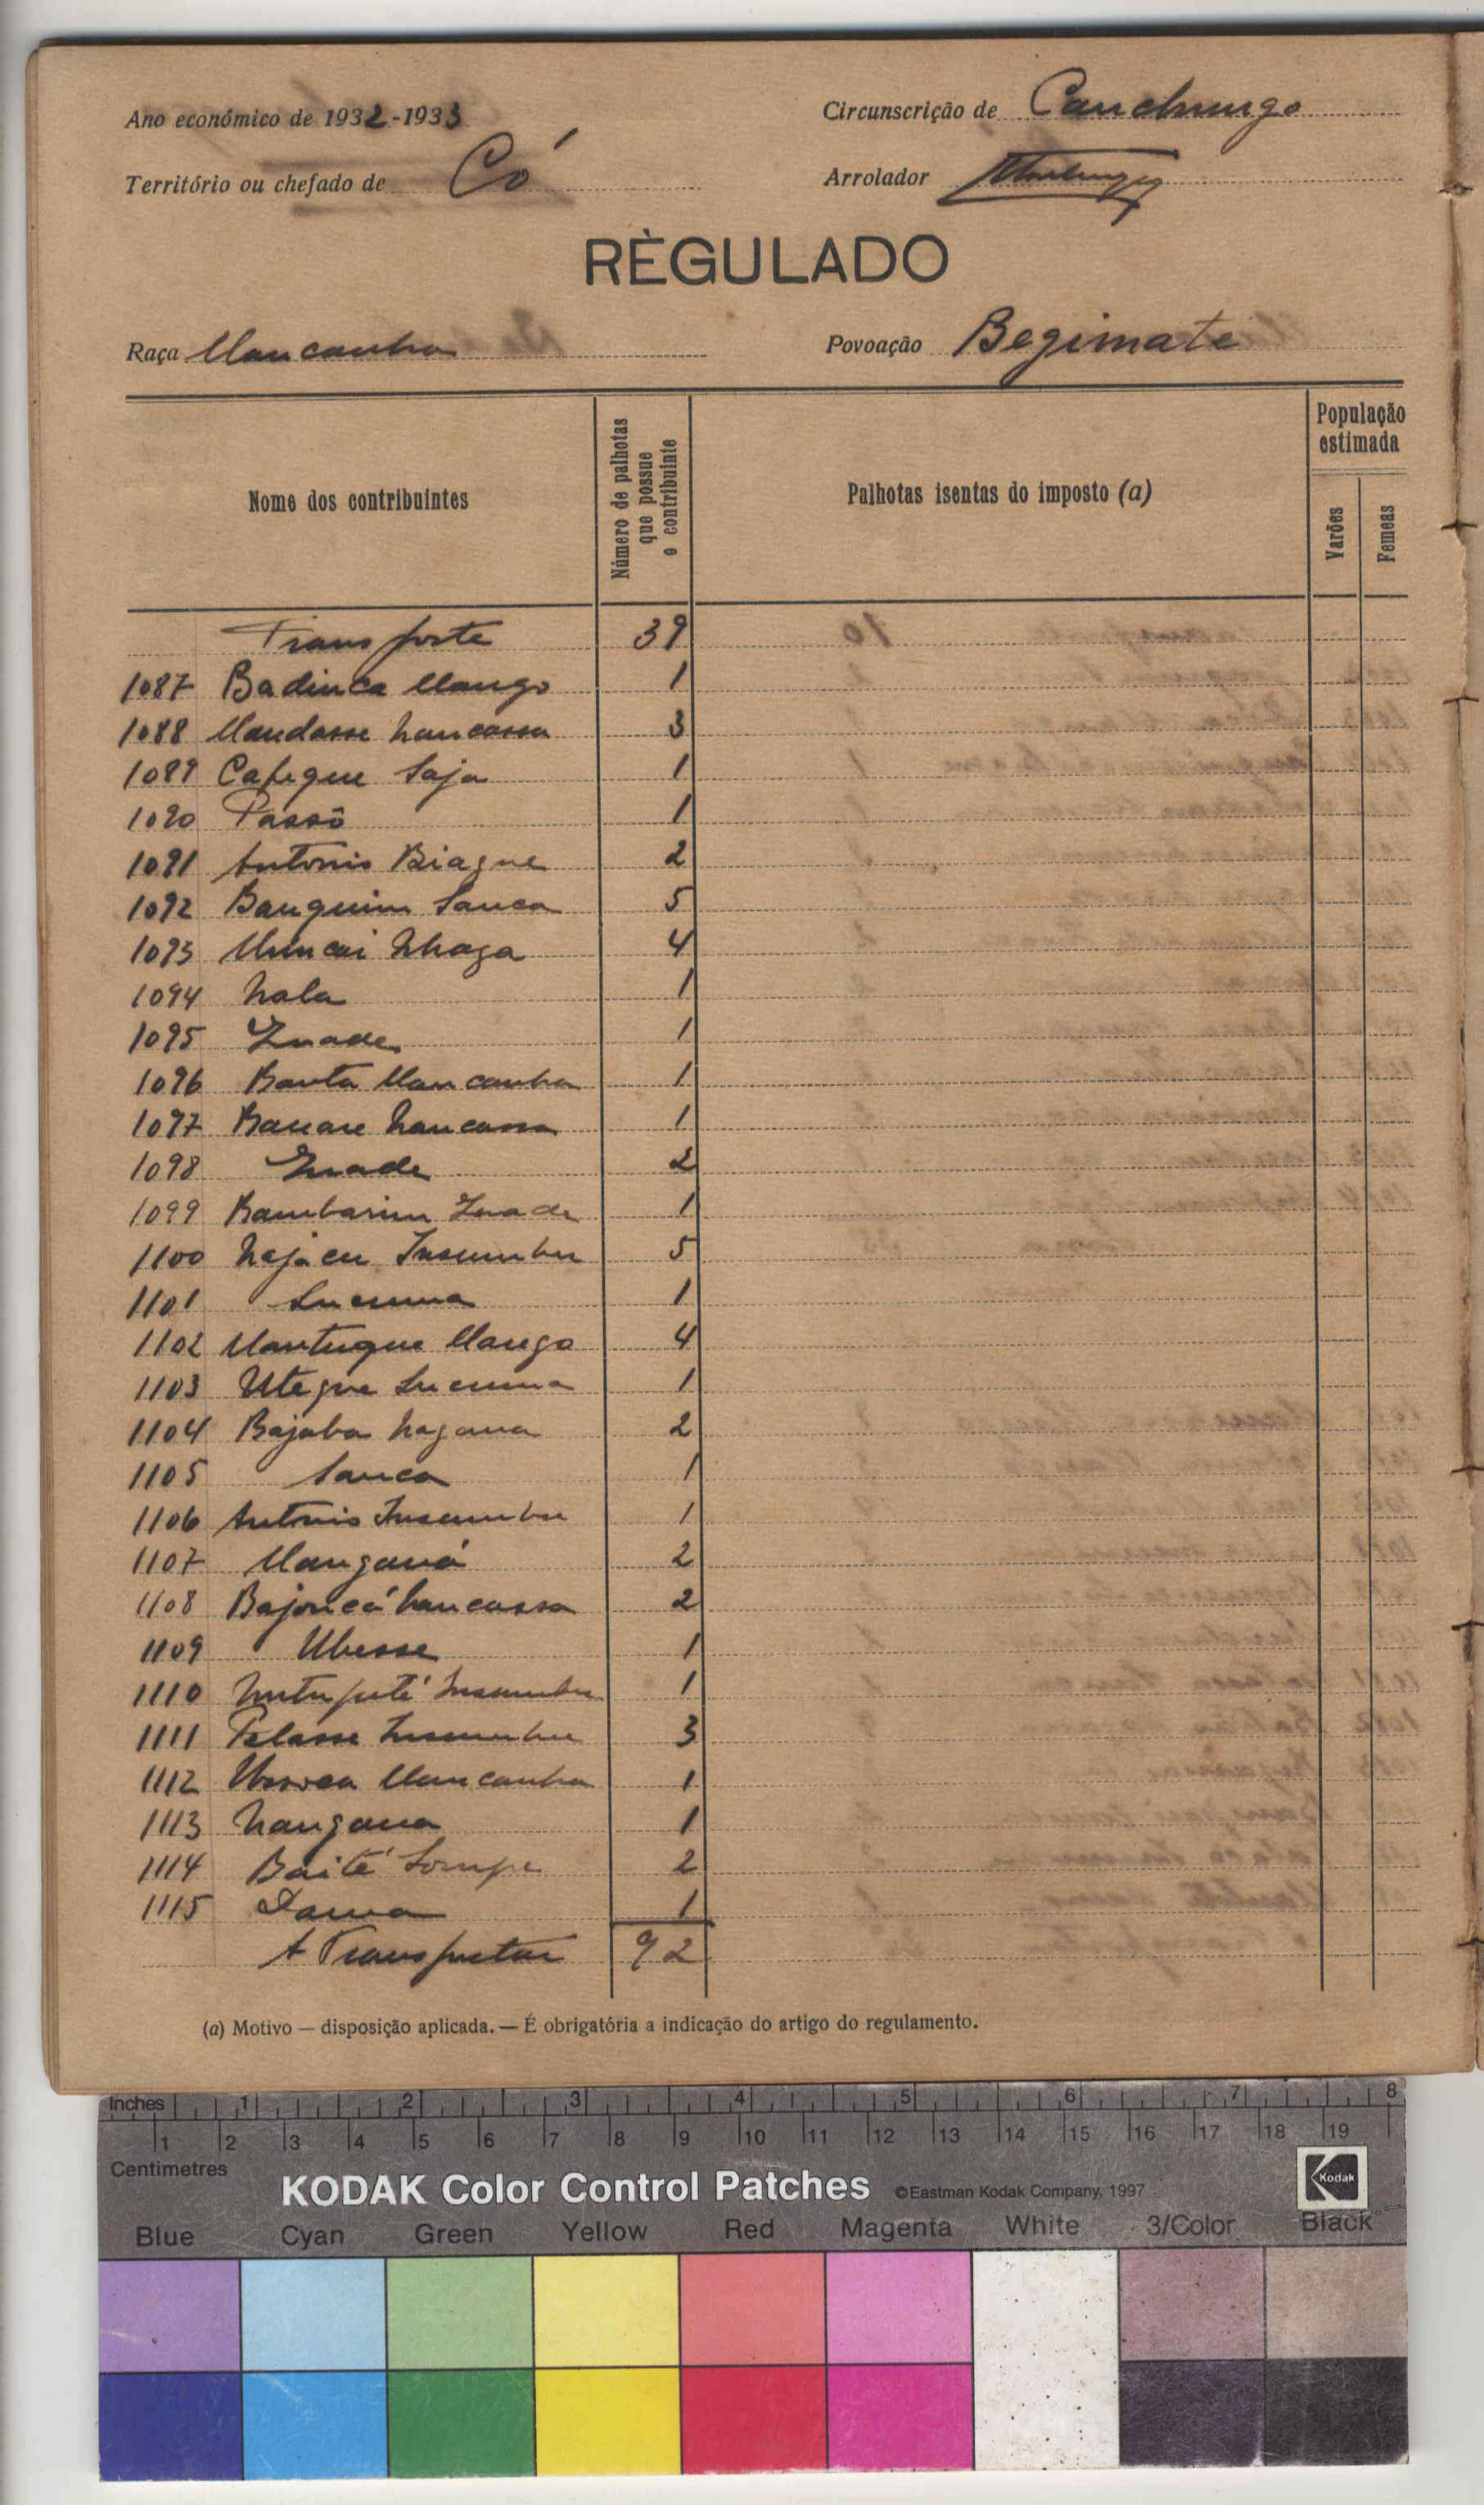 Ano económico de 1932-1933
Circunscrição de Canchungo
Território ou chefado de Có
Arrolador
RÈGULADO
Raça Mancanha
Povoação Begimate
Nome dos contribuintes
Número de palhotas que possue o contribuinte
Palhotas isentas do imposto (a)
População estimada
Varões
Femeas
Transporte 39
1087 Badinca Mango 1
1088 Mandasse Nancassa 3
1089 Cafegue Saja 1
1090 Passô 1
1091 Antonio Biague 2
1092 Banguim Sanca 5
1093 Muncai Nhaga 4
1094 Nala 1
1095 Znade 1
1096 Banta Mancanha 1
1097 Banare Nancassa 1
1098 Znade 2
1099 Bambarim Znade 1
1100 Najacu Insumbu 5
1101 Lucuma 1
1102 Mantugue Mango 4
1103 Utegue Lucuma 1
1104 Bajaba Nagana 2
1105 Sanca 1
1106 Antonio Insumbu 1
1107 Manganá 2
1108 Bajoncá Nancassa 2
1109 Ubesse 1
1110 Insumbu 1
1111 Pelasse Insumbu 3
1112 Mancanha 1
1113 Nangana 1
1114 Baité Sompe 2
1115 Dama 1
A Transportar 92
(a) Motivo — disposição aplicada. — É obrigatória a indicação do artigo do regulamento.
Inches 1 2 3 4 5 6 7 8
1 2 3 4 5 6 7 8 9 10 11 12 13 14 15 16 17 18 19
Centimetres
KODAK Color Control Patches ©Eastman Kodak Company, 1997 Kodak
Blue Cyan Green Yellow Red Magenta White 3/Color Black